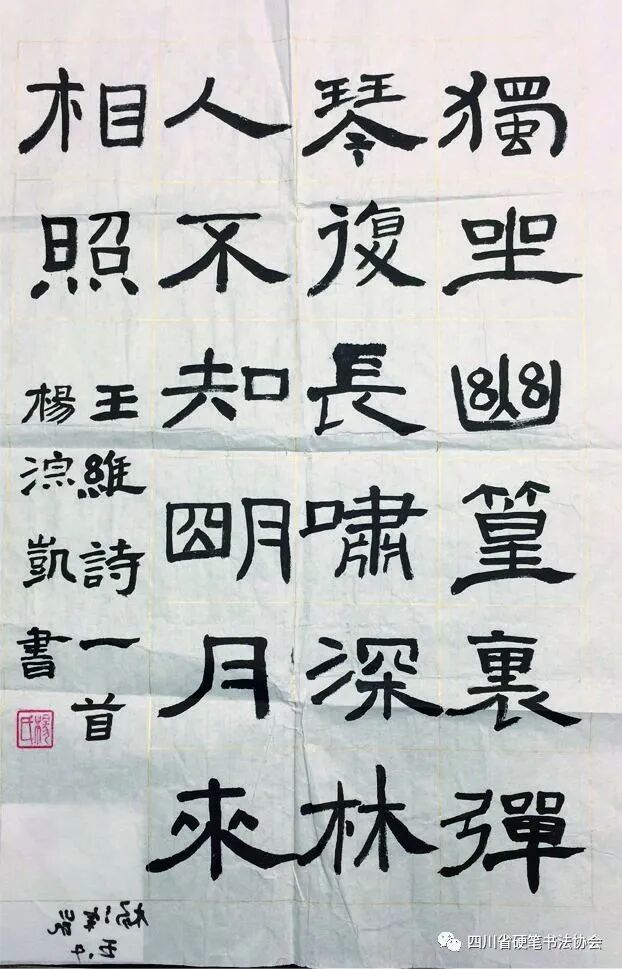 獨坐幽篁裏彈
琴復長嘯深林
人不知明月來
相照
王維詩一首
楊淙凱書
楊氏
四川省硬笔书法协会